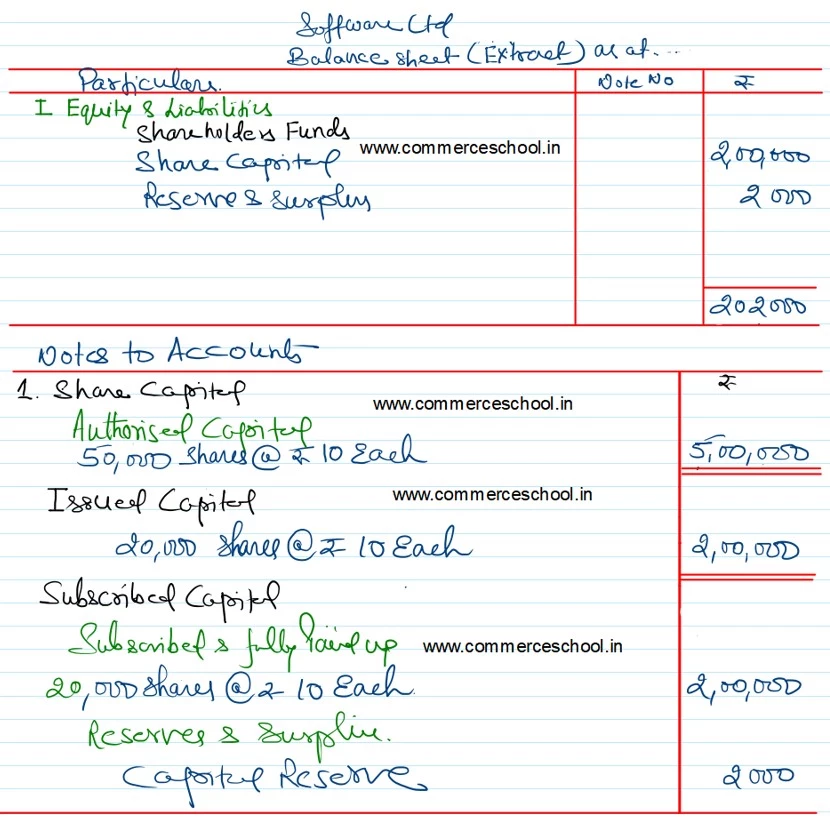 Software Ltd
Balance sheet (Extract) as at....
Particulars. Note No ₹
I Equity & Liabilities
Shareholders Funds
www.commerceschool.in
Share Capital 2,00,000
Reserve & Surplus 2000
202000
Notes to Accounts
1. Share Capital ₹
www.commerceschool.in
Authorised Capital
50,000 Shares @ ₹ 10 Each 5,00,000
Issued Capital www.commerceschool.in
20,000 Shares @ ₹ 10 Each 2,00,000
Subscribed Capital
Subscribed & fully Paid up www.commerceschool.in
20,000 Shares @ ₹ 10 Each. 2,00,000
Reserves & Surplus.
Capital Reserve 2000